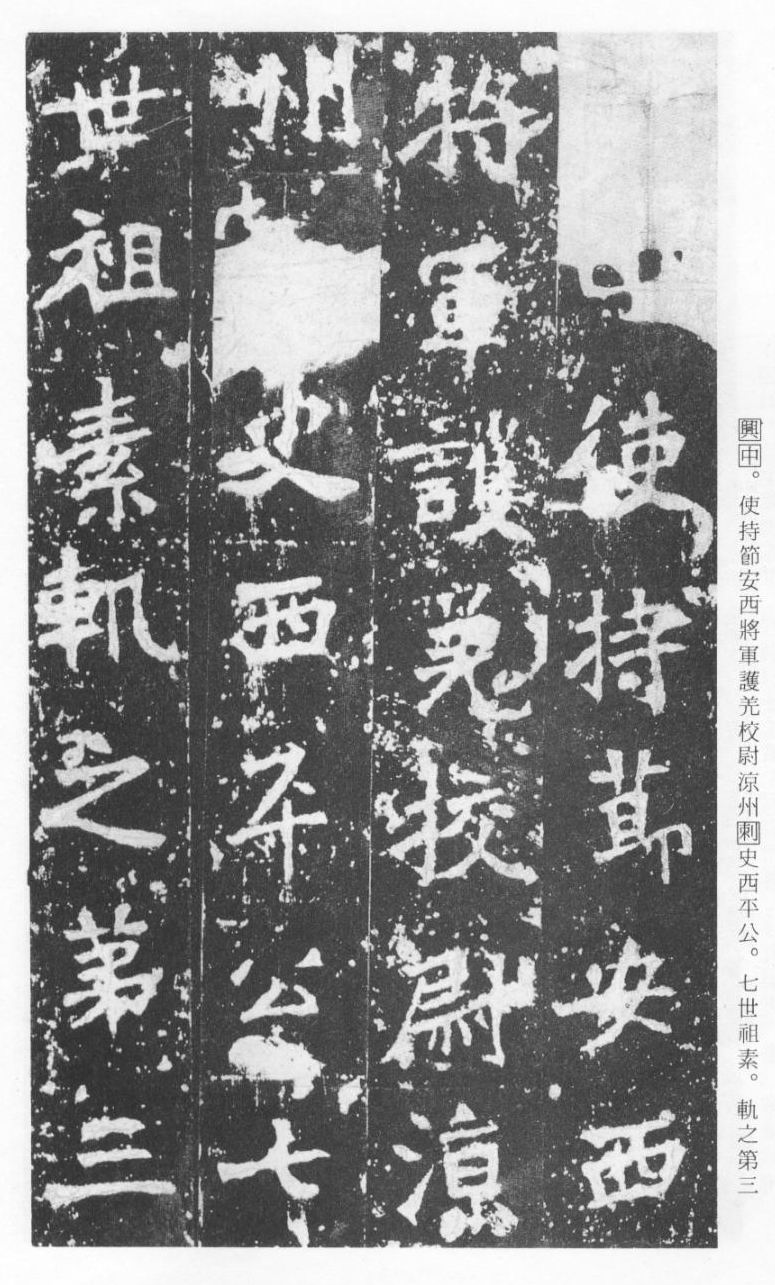 使持節安西
將軍護羌校尉涼
州史西平公七
世祖素軌之第三
興中。使持節安西將軍護羌校尉涼州刺史西平公。七世祖素。軌之第三